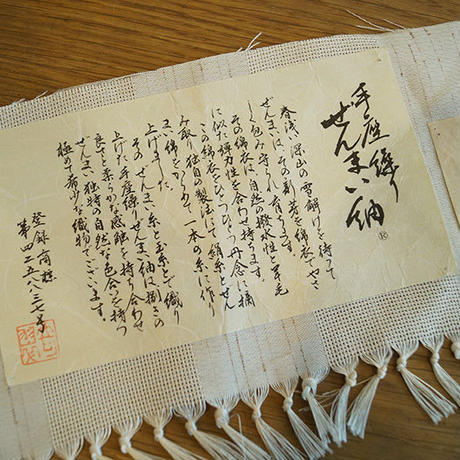 手座繰り
ぜんまい紬®
春浅い深山の雪解けを待って
ぜんまいは、その新芽を綿衣でやさ
しく包み守られ育ちます。
その綿衣は、自然の撥水性と羊毛
に似た弾力性を合わせ持ちます。
この綿衣をひとつひとつ丹念に摘
み取り独自の製法にて絹糸とぜん
まい綿をからめて一本の糸に作り
上げました。
その ぜんまい糸と玉糸とで織り
上げた手座繰りぜんまい紬は捌きの
良さと柔らかな感触を持ち合わせ
ぜんまい独特の自然な色合を持つ
極めて希少な織物でございます。
登録商標
第四二五八三七号